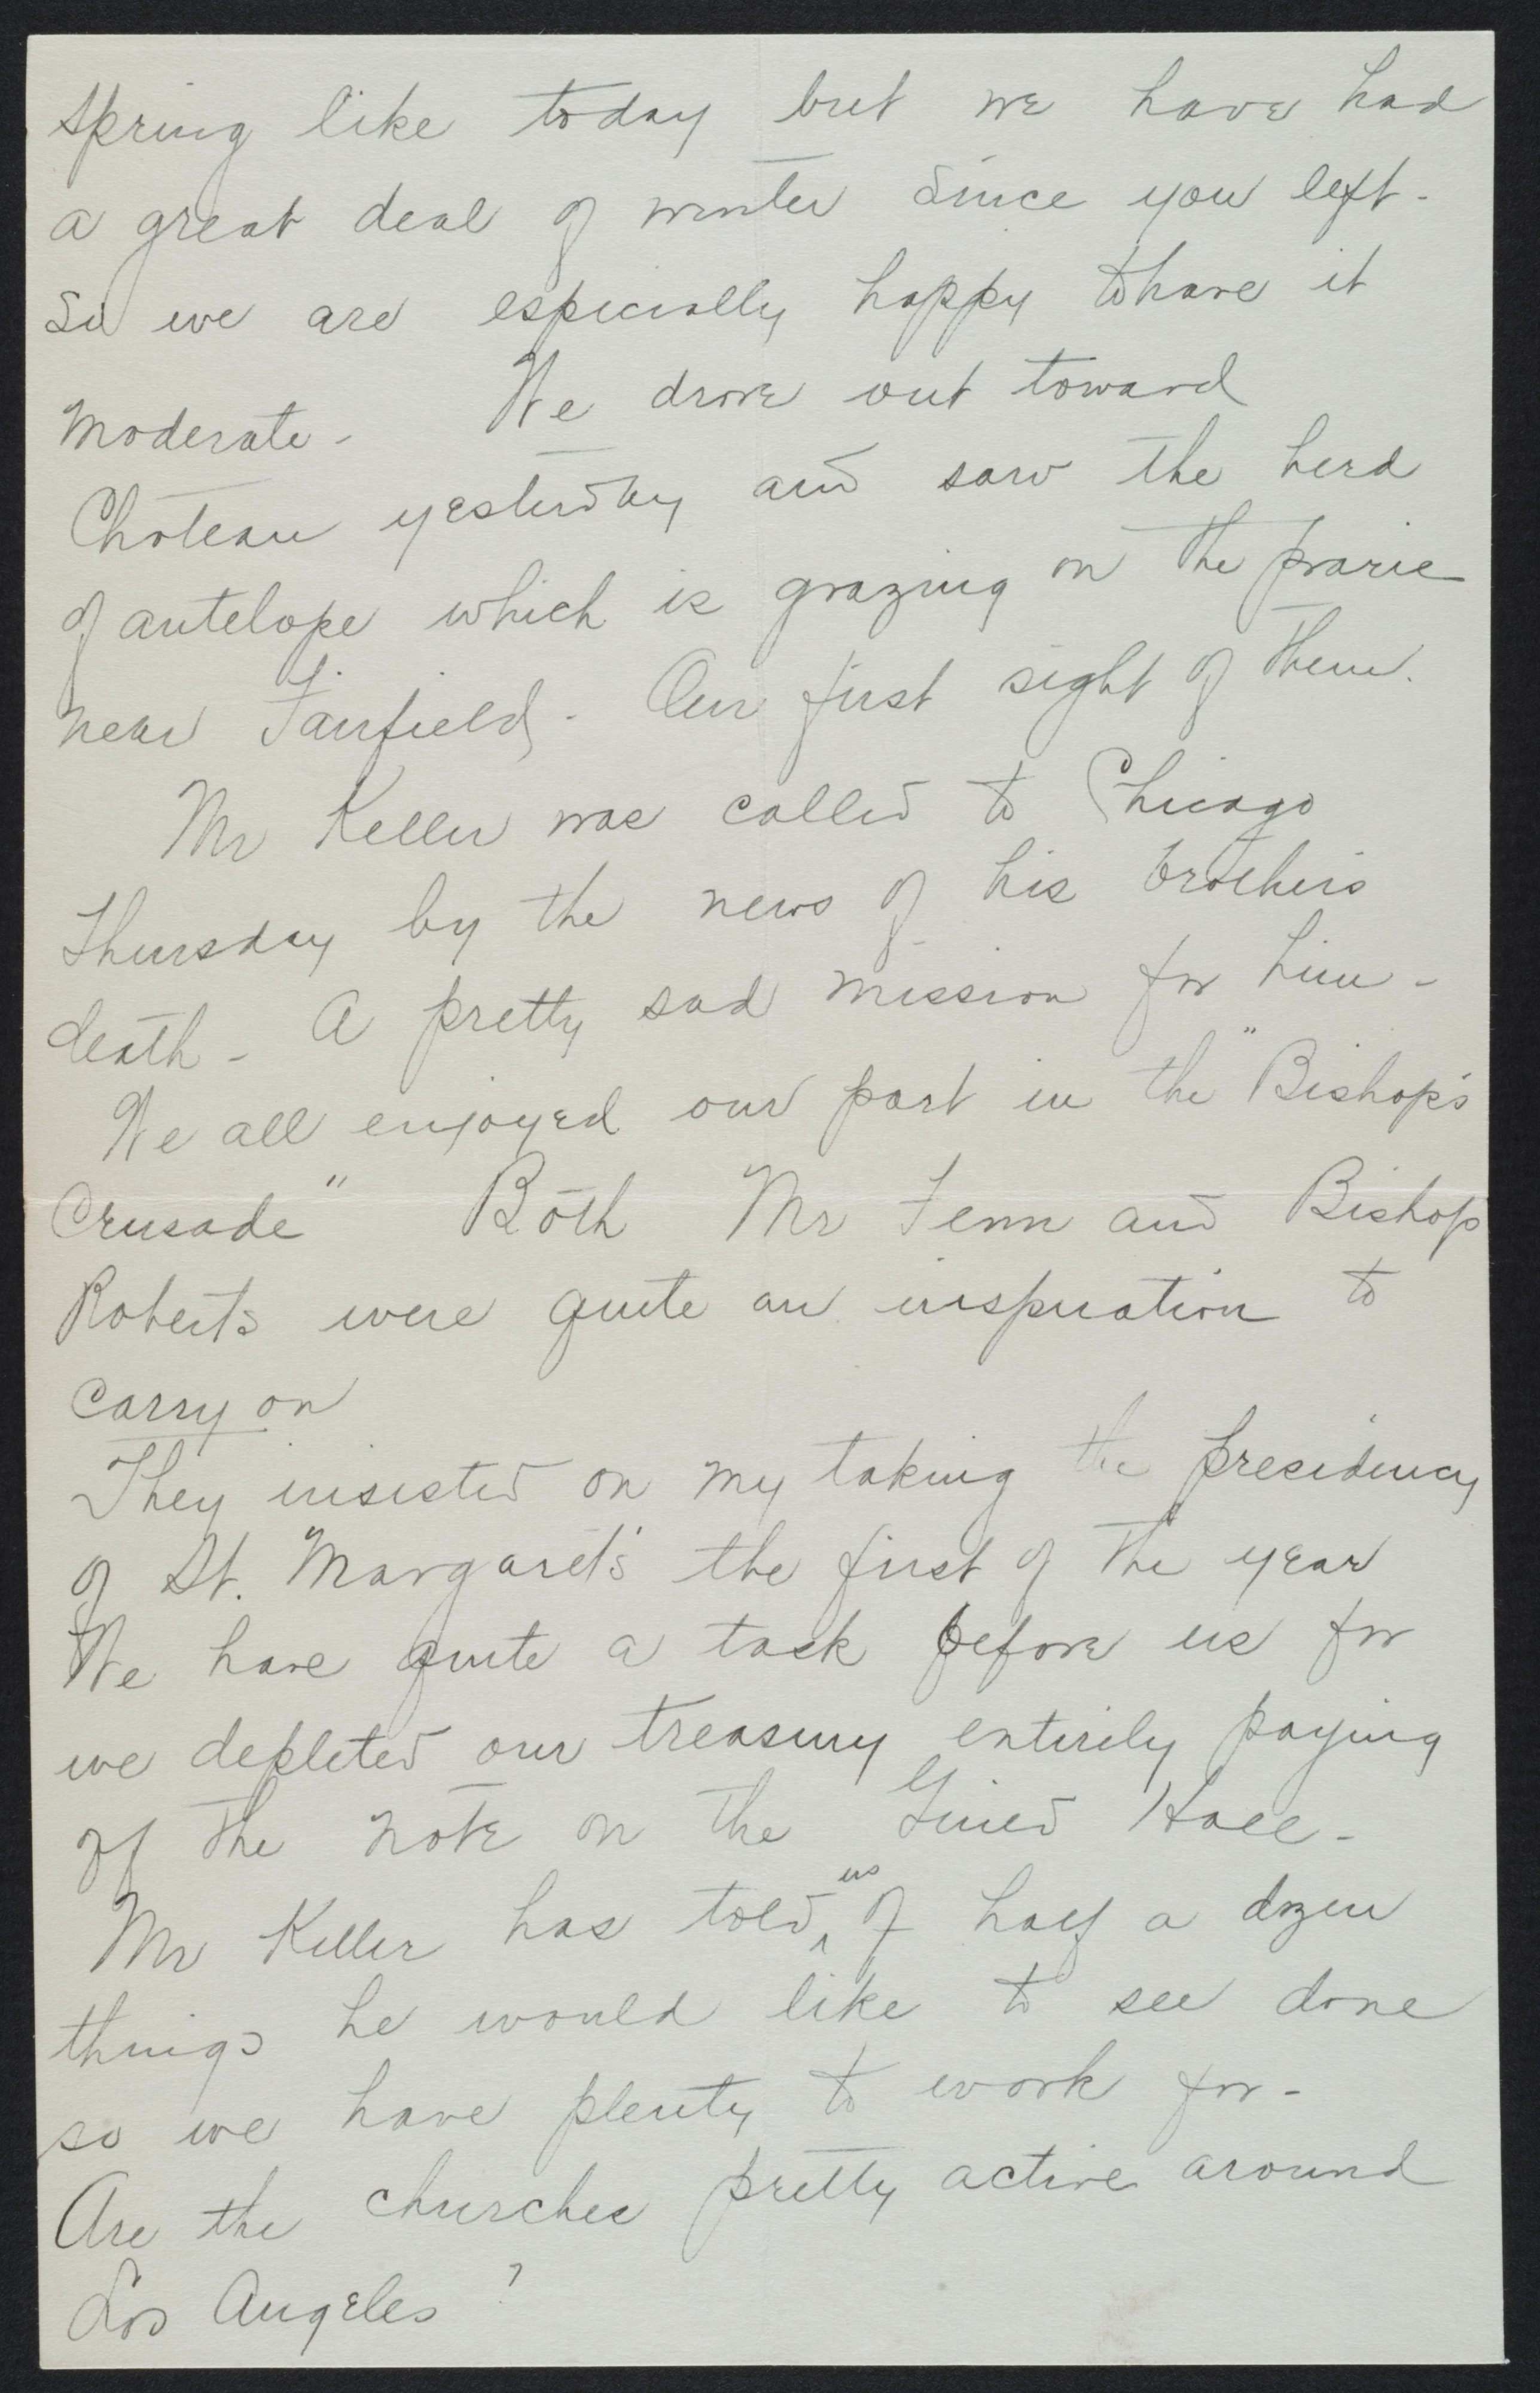 spring like today but we have had
a great deal of winter since you left -
So we are especially happy to have it
moderate - We drove out toward
Choteau yesterday and saw the herd
of antelope which is grazing on the prarie
near Fairfield - Our first sight of them.
Mr Keller was called to Chicago
Thursday by the news of his brothers
death - A pretty sad mission for him -
We all enjoyed our part in the "Bishop's
Crusade" Both Mr Fenn and Bishop
Roberts were quite an inspiration to
carry on
They insisted on my taking the presidency
of St. Margaret's the first of the year
We have quite a task before us for
we depleted our treasury entirely paying
off the note on the Guild Hall -
Mr Keller has told us of half a dozen
things he would like to see done
so we have plenty to work for -
Are the churches pretty active around
Los Angeles?